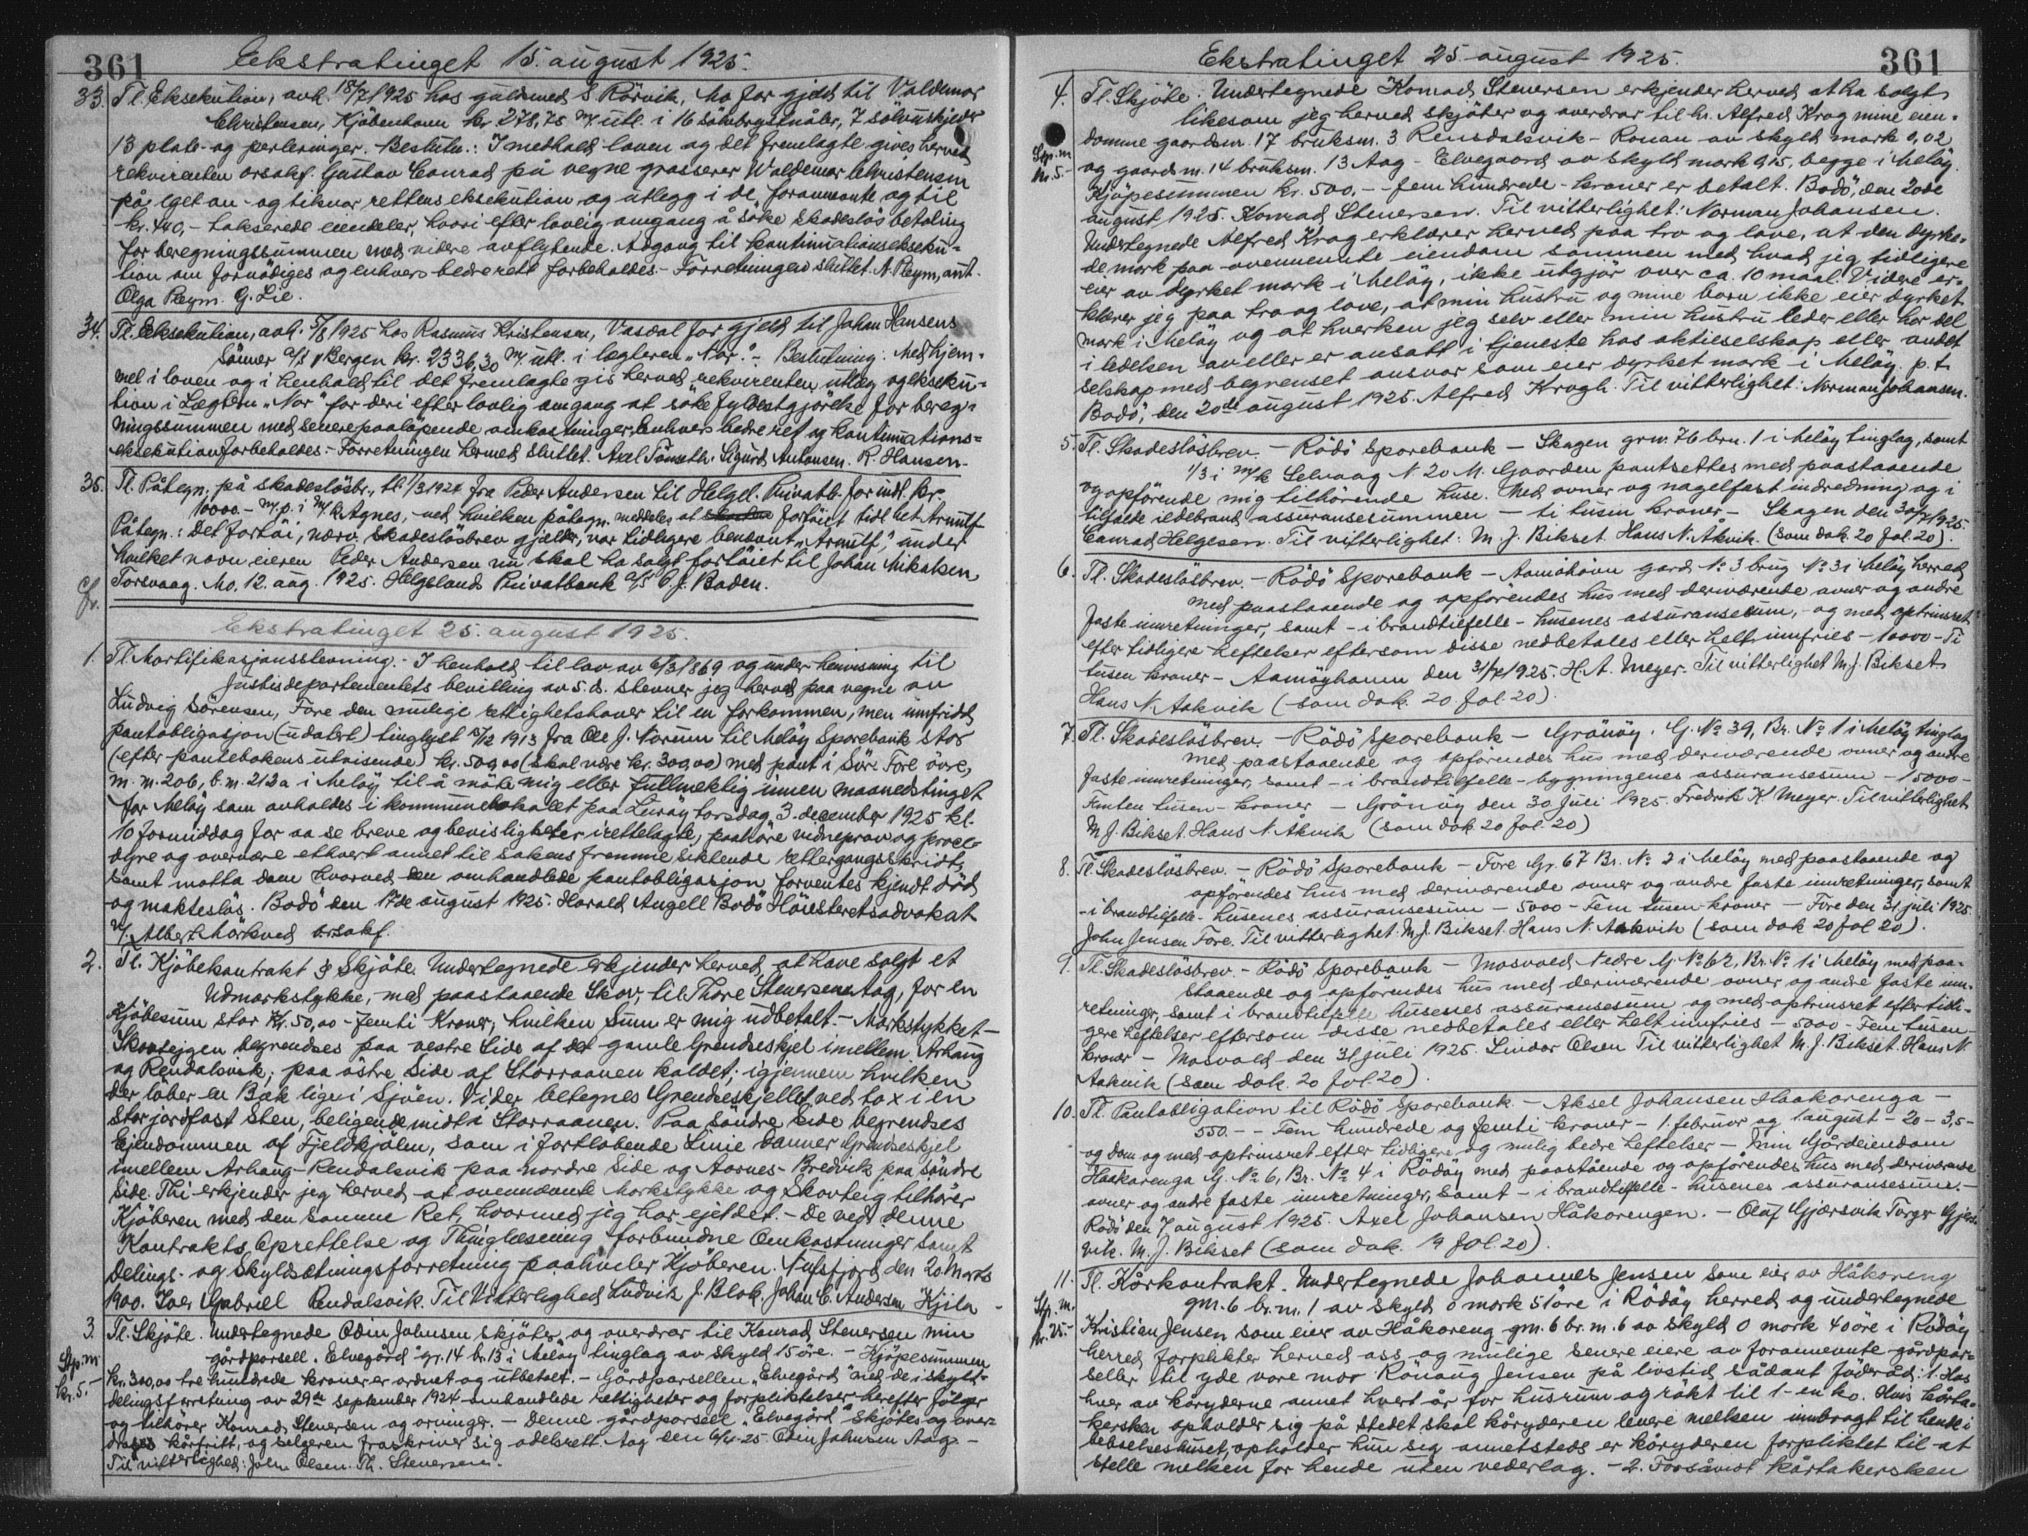 361
Ekstratinget 15. august 1925.
33. Tl. Eksekution, avh. 18/7 1925 hos guldsmed S Rörvik, Mo for gjeld til Valdemar
Christensen, Kjöbenhavn kr. 278,75 m/utl. i 16 sölvbrystnåler, 7 sölvuskjeder
13 plate- og perleringer. Beslutn.: I medhold loven og det fremlagte gives herved
rekvirenten orsakf. Gustav Conrad på vegne grosserer Waldemar Christensen
påleget an- og tiknar rettens eksekution og utlegg i de forannevnte og til
kr. 440,- takserede eiendeler, hvori efter lovlig omgang å söke skadeslös betaling
for beregningssummen med videre avflytende. Adgang til kontinuationsekseku-
tion om fornödiges og enhvers bedre rett forbeholdes - Forretningen sluttet. N. Reym, aut.
Olga Reym. G. Lie.
34. Tl. Eksekution, avh. 5/8 1925 hos Rasmus Kristensen, Vasdal for gjeld til Johan Hansens
Sönner A/S Bergen kr. 2336,30 m/ utl. i lægteren "Nor". - Beslutning: Med hjem-
mel i loven og i henhold til det fremlagte gis herved rekvirenten utlæg og ekseku-
tion i Lægteren "Nor" for deri efter lovlig omgang at söke fyldestgjörelse for bereg-
ningssummen med senere paalöpende omkostninger. Enhvers bedre ret og kontinuations-
eksekution forbeholdes. - Forretningen hermed sluttet. Axel Tömseth. Sigurd Antonsen. R. Hansen.
35. Tl. Påtegn. på skadeslösbr., tl. 1/3 1924 fra Peder Andersen til Helgel. Privatb. for intl. kr.
10000.- m. p. i m/k Agnes, ved hvilken påtegn. meddeles at fortöiet tidl. het Arnulf
Påtegn.: Det fartöi, nærv. skadeslösbrev gjelder, var tidligere benevnt "Arnulf", under
hvilket navn eieren Peder Andersen nu skal ha solgt fartöiet til Johan Mikalsen
Torsvaag. Mo. 12. aug. 1925. Helgelands Privatbank A/S C. J. Baden.
Ekstratinget 25. august 1925.
1. Tl. Mortifikasjonsstevning. - I henhold til lov av 6/3 1869 og under henvisning til
Justisdepartementets bevilling av s. d. stevner jeg herved paa vegne av
Ludvig Sörensen, Fore den mulige rettighetshaver til en forkommen, men innfridd
pantobligasjon (udatert) tinglyst 12/12 1913 fra Ole J. Norum til Melöy Sparebank stor
(efter pantebokens utvisende) kr. 500,00 (skal være kr. 300,00) med pant i Söre Fore övre,
m. nr. 206, b. nr. 212a i Melöy til å möte mig eller fullmektig innen maanedstinget
for Melöy som avholdes i kommunelokalet paa Luröy torsdag 3. december 1925 kl.
10 formiddag for aa se breve og bevisligheter irettelagte, paahöre vidneprov og proce-
dyre og overvære ethvert annet til sakens fremme siktende rettergangsskridt,
samt motta dom hvorved den omhandlede pantobligasjon forventes kjendt död
og maktesløs. Bodö den 17de august 1925. Harald Angell Bodö Höiesteretsadvokat
v/ Albert Mörkved orsakf.
2. Tl. Kjöbekontrakt & Skjöte. Undertegnede erkjender herved at have solgt et
Udmarkstykke, med paastaaende Skov, til Thore Stenersen Aag, for en
Kjöbesum stor Kr. 50,00 - femti Kroner, hvilken Sum er mig udbetalt. - Markstykket -
Skovteigen begrendses paa vestre Side af det gamle Grendseskjel imellem Arhaug
og Rendalsvik, paa östre Side af Storraanen kaldet, igjennem hvilken
der löber en Bæk lige i Sjöen. Vider betegnes Grendseskjellet ved to x i en
Stor jordfast Sten, beligende midt i Storraanen. Paa Söndre Side begrendses
Ejendommen af Fjeldkjölen, som i fortlöbende Linie danner Grendseskjel
imellem Arhaug - Rendalsvik paa nordre Side og Aarnes - Bredvik paa söndre
Side. Thi erkjender jeg herved at ovennævnte Markstykke og Skovteig tilhører
Kjöberen med den samme Ret, hvormed jeg har ejet det. - De ved denne
Kontrakts Oprettelse og Thinglæsning forbundne Omkostninger samt
Delings- og Skyldsætningsforretning paahviler Kjöberen. Nusfjord den 20 Marts
1900. Iver Gabriel Rendalsvik. Til Vitterlighed Ludvik J. Blok. Johan C. Andersen Kjila
3. Tl. Skjöte. Undertegnede Odin Johnsen skjöter og overdrar til Konrad Stenersen min
Stp. m.
kr. 5.-
gårdparsell "Elvegård" gr. 14 br. 13 i Melöy tinglag av skyld 15 öre. - Kjöpesummen
kr. 300,00 tre hundrede kroner er ordnet og utbetalt. - Gårdparsellen "Elvegård" med de i skyld-
delingsforretning av 29de september 1924 omhandlede rettigheter og forpliktelser herefter fölger
og tilhörer Konrad Stenersen og arvinger. - Denne gårdparsell "Elvegård" skjötes og over-
drages kårfritt, og selgeren fraskriver sig odelsrett. Aag den 6/4-25 Odin Johnsen Aag. -
Til vitterlighed: John Olsen. Th. Stenersen.
361
Ekstratinget 25 august 1925.
4. Tl. Skjöte. Undertegnede Konrad Stenersen erkjender herved at ha solgt
likesom jeg herved skjöter og overdrar til hr. Alfred Krog mine eien-
Stp. m.
kr. 5.-
domme gaardsnr. 17 bruksnr. 3 Rensdalsvik - Ronan av skyld mark 0,02
og gaardsnr. 14 bruksnr. 13 Aag - Elvegaard av skyld mark 0,15, begge i Melöy.
Kjöpesummen kr. 500,- - fem hundrede - kroner er betalt. Bodö, den 20de
august 1925. Konrad Stenersen. Til vitterlighet: Norman Johansen.
Undertegnede Alfred Krog erklærer herved paa tro og love, at den dyrke-
de mark paa ovennevnte eiendom sammen med hvad jeg tidligere
eier av dyrket mark i Melöy, ikke utgjør over ca. 10 maal. Videre er-
klærer jeg paa tro og love, at min hustru og mine barn ikke eier dyrket
mark i Melöy og at hverken jeg selv eller min hustru leder eller har del
i ledelsen av eller er ansatt i tjeneste hos aktieselskap eller andet
selskap med begrenset ansvar som eier dyrket mark i Melöy. p. t.
Bodö, den 20de august 1925. Alfred Krogh. Til vitterlighet: Norman Johansen.
5. Tl. Skadeslösbrev. - Rödö Sparebank - Skagen grnr. 76 brn. 1 i Melöy tinglag, samt
1/3 i m/k Selvaag N 20 M. Gaarden pantsettes med paastaaende
og opförende mig tilhörende huse. Med ovner og nagelfast indredning og i
tilfælde ildebrand assuransesummen - ti tusen kroner - Skagen den 30/7 1925
Conrad Helgesen. Til vitterlighet: M. J. Bikset. Hans N. Åkvik. (som dok. 20 fol. 20).
6. Tl. Skadeslösbrev. - Rödö Sparebank - Aamöhavn gard No 3 brug No 31 Melöy herred
med paastaaende og opförendes hus med derværende ovner og andre
faste innretninger, samt - i brandtilfelle - husenes assuransesum, - og med optrinsret
efter tidligere heftelser eftersom disse nedbetales eller helt innfries - 10000 - Ti
tusen kroner - Aamöyhavn den 31/7 1925. H. A. Meyer. Til vitterlighet M. J. Bikset
Hans N. Aakvik (som dok. 20 fol 20).
7. Tl. Skadeslösbrev. - Rödö Sparebank - Grönöy. G. No 39, Br. No 1 i Melöy tinglag
med paastaaende og opförendes hus med derværende ovner og andre
faste innretninger, samt - i brandtilfelle - bygningenes assuransesum - 15000 -
Femten tusen - kroner - Grönöy den 30 juli 1925. Fredrik K. Meyer. Til vitterlighet
M. J. Bikset. Hans N. Åkvik (som dok 20 fol. 20)
8. Tl. Skadeslösbrev. - Rödö Sparebank - Fore Gr. 67 Br. No 2 i Melöy med paastaaende og
opförendes hus med derværende ovner og andre faste innretninger, samt
- i brandtilfelle - husenes assuransesum - 5000 - Fem tusen kroner - Fore den 31 juli 1925.
John Jensen Fore. Til vitterlighet: M. J. Bikset. Hans N. Aakvik (som dok 20 fol 20).
9. Tl. Skadeslösbrev. - Rödö Sparebank - Mosvold Nedre G. No 62, Br. No 1 i Melöy med paa-
staaende og opförendes hus med derværende ovner og andre faste inn-
retninger, samt i brandtilfelle husenes assuransesum og med optrinsret efter tidli-
gere heftelser eftersom disse nedbetales eller helt innfries - 5000 - Fem tusen
kroner - Mosvold den 31 juli 1925. Lindor Olsen Til vitterlighet M. J. Bikset. Hans N.
Aakvik (som dok. 20 fol. 20).
10. Tl. Pantobligation til Rödö Sparebank - Aksel Johansen Haakorenga -
550.- - Fem hundrede og femti kroner - 1. februar og 1 august - 20 - 3,5 -
- og dom og med optrinsret efter tidligere og mulig bedre heftelser - Min Gårdeiendom
Haakarenga G. No 6, Br. No 4 i Rödöy med paastående og opförendes hus med derværende
ovner og andre faste innretninger, samt - i brandtilfelle - husenes assuransesum. -
Rödö den 7 august 1925. Axel Johansen Håkorengen. - Olaf Gjersvik Torgr Gjers-
vik. M. J. Bikset (som dok. 19 fol. 20).
11. Tl. Kårkontrakt. Undertegnede Johannes Jensen som eier av Håkoreng
Stp. m.
kr. 25.-
gnr. 6 br. nr. 1 av skyld 0 mark 51 öre i Rödöy herred og undertegnede
Kristian Jensen som eier av Håkoreng gnr. 6 br. nr. 6 av skyld 0 mark 40 öre i Rödöy
herred forplikter herved oss og mulige senere eiere av forannevnte gårdpar-
seller til å yde vore mor Rönaug Jensen på livstid sådant föderåd: 1. Hos
hver av kåryderne annet hvert år for husrum og rökt til 1 - en ko. Hvis kårta-
kersken opholder sig på stedet skal kåryderen levere melken innbragt til henne i
beboelseshuset, opholder hun sig annetsteds er kåryderen forpliktet til at
stelle melken for hende uten vederlag. - 2. Forsåvidt kårtakersken